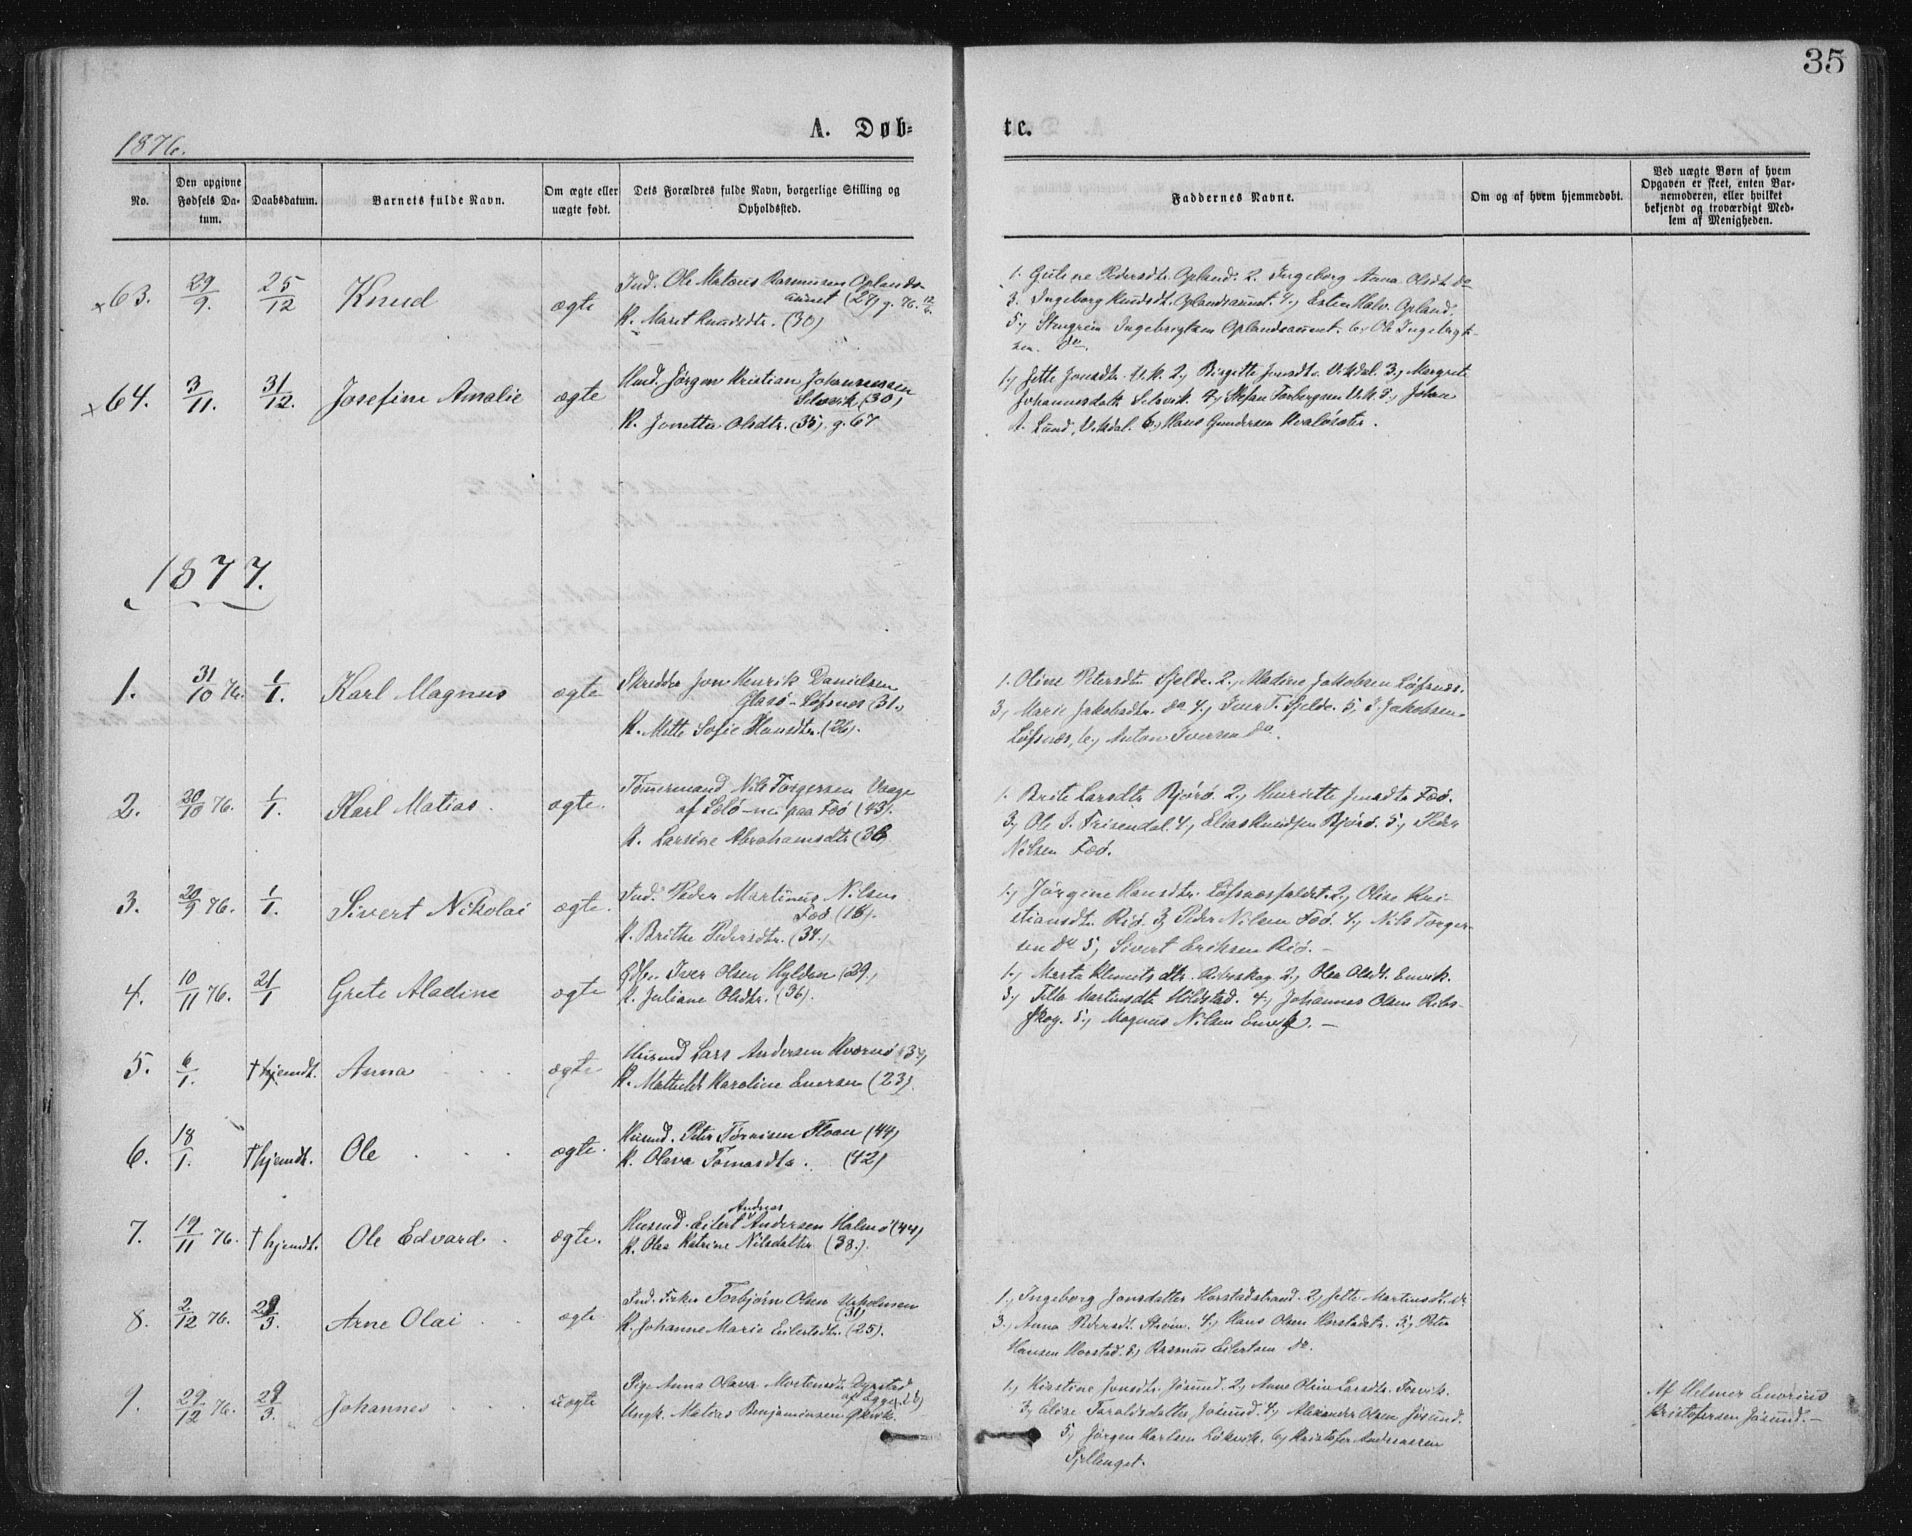 35
1876.
A. Døb-
te.
No.
Den opgivne Fødsels Da-
tum.
Daabsdatum.
Barnets fulde Navn.
Om ægte eller
uægte født.
Dets Forældres fulde Navn, borgerlige Stilling og
Opholdssted.
Faddernes Navne.
Om og af hvem hjemmedøbt.
Ved uægte Børn af hvem
Opgaven er skeet, enten Bar-
nemoderen, eller hvilket
bekjendt og troværdigt Med-
lem af Menigheden.
×63. 29/9. 25/12 Knud ægte
Ind. Ole Rasmussen Oplands-
aunet (27) g. 76.
K. Maret Knudsdtr. (30)
1. Pedersdtr. Opland. 2. Ingeborg Anna Olsdt. do
3. Ingeborg Knudsdt. Oplandsaunet. 4, Esten Halv. Opland.
5, Ingebrigtsen Oplandsaunet. 6, Ole Ingebrigt-
sen. do.
×64. 3/11. 31/12. Josefine Amalie ægte
Jørgen Kristian Johannessen
Selsvik (30)
K. Jonetta Olsdtr. (35). g. 67
1, Jette Jonsdtr. 2, Birgitte Jonsdtr. Vikdal. 3, Margret
Johannesdatr. Selsvik. 4, Stefan Torbergsen 5, Johan
A. Lund, Vikdal. 6, Hans Gundersen
1877.
1. 31/10 76. 1/1. Karl Magnus ægte
Skredder Jon Henrik Danielsen
Glasø - Løfsnes (31.)
K. Mette Sofie Hansdtr. (26).
1. Oline Petersdtr. Fjelde. 2, Jakobsen Løfsnes.
3, Marie Jakobsdtr. do 4, Iver T. Fjelde. 5, J. Jakobsen
Løfsnes, 6, Anton Iversen do.
2. 20/10 76. 1/1. Karl Matias. ægte.
Tømmermand Nils Torgersen Vaage
af paa Foø (43).
K. Larsine Abrahamsdtr (36
1. Brite Larsdtr Bjørø. 2, Henriette Jensdtr Foø.
3, Ole J. Trisendal. 4, Elias Knudsen Bjørø. 5, Peder
Nilsen Foø.
3. 20/9 76. 1/1. Sivert Nikolai ægte.
Ind. Peder Martinus Nilsen
Foø
K. Brithe Pedersdtr. (34.)
1, Jørgine Hansdtr. 2, Oline Kri-
stiansdtr. Riø. 3, Peder Nilsen Foø. 4, Nils Torger-
sen do 5, Sivert Eriksen Riø. -
4. 10/11 76. 21/1 Grete Aladine ægte
Iver Olsen Hylden (39,
K. Juliane Olsdtr. (36).
1, Marta Klemitsdtr. Ribsskog. 2, Olea Olsdt. Emvik.
3, Martinsdt. Holdstad. 4, Johannes Olsen Ribs-
skog. 5, Magnus Nilsen -
5. 6/1. † hjemdt. Anna ægte.
Husmd Lars Andersen (34)
K. Karoline (23).
6. 18/1. † hjemdt. Ole ægte.
Husmd. Peter (44)
K. Olava Tomasdtr. (42)
7. 19/11 76. † hjemdt. Ole Edvard ægte.
Andreas
Husmd. Eilert Andersen Halmø (44)
K. Olea Katrine Nilsdatter (38.).
8. 2/12 76. 29/3. Arne Olai ægte.
Ind. Fisker Torbjørn Olsen
(31)
K. Johanne Marie Eilertsdtr. (25).
1, Ingeborg Jonsdatter Horstadstrand. 2, Jette Martinsdt. do
3, Anna Pedersdt. 4, Hans Olsen Horstadstr. 5, Peter
Hansen Horstad. 6, Rasmus Eilertsen do.
9. 29/12 76. 29/3. Johannes uægte
Pige Anna Olava Mortensdtr.
Ungk. Matias Benjaminsen
1, Kirstine Jonsdtr. Jøsund. 2, Anne Larsdtr. Torvik.
3, Elise Taraldsdatter Jøsund. 4, Alexander Olsen Jøsund.
5, Jørgen Karlsen 6, Kristofer Andreassen
Sjellenget.
Af Helmer
Kristofersen Jøsund. -